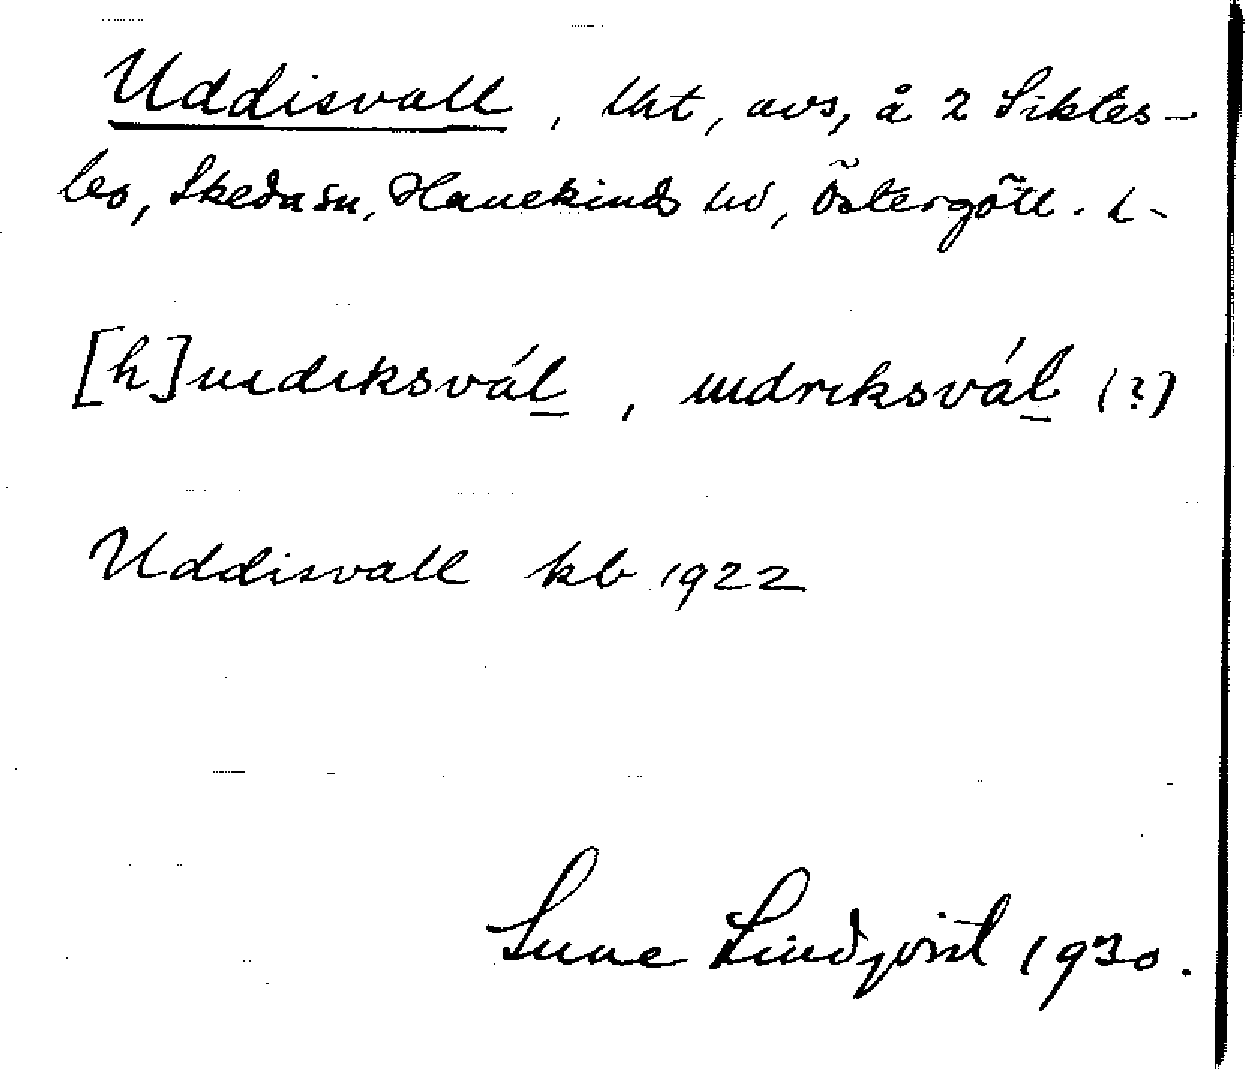 Uddisvall, lht, avs, å 2 Siktes-
bo, Skeda sn, Hanekinds hd, Östergötl. l-
[h]undiksvál, undriksvál (?)
Uddisvall kb 1922
Sune Lindqvist 1930.